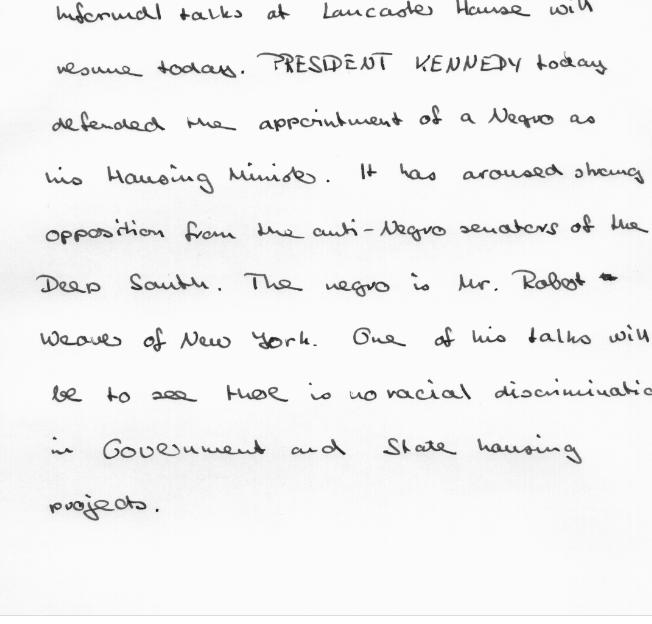 informal talks at Lancaster House will
resume today. PRESIDENT KENNEDY today
defended the appointment of a Negro as
his Housing Minister. It has aroused strong
opposition from the anti-Negro senators of the
Deep South. The negro is Mr. Robert
Weaver of New York. One of his talks will
be to see there is no racial discriminatio
in Government and State housing
projects.